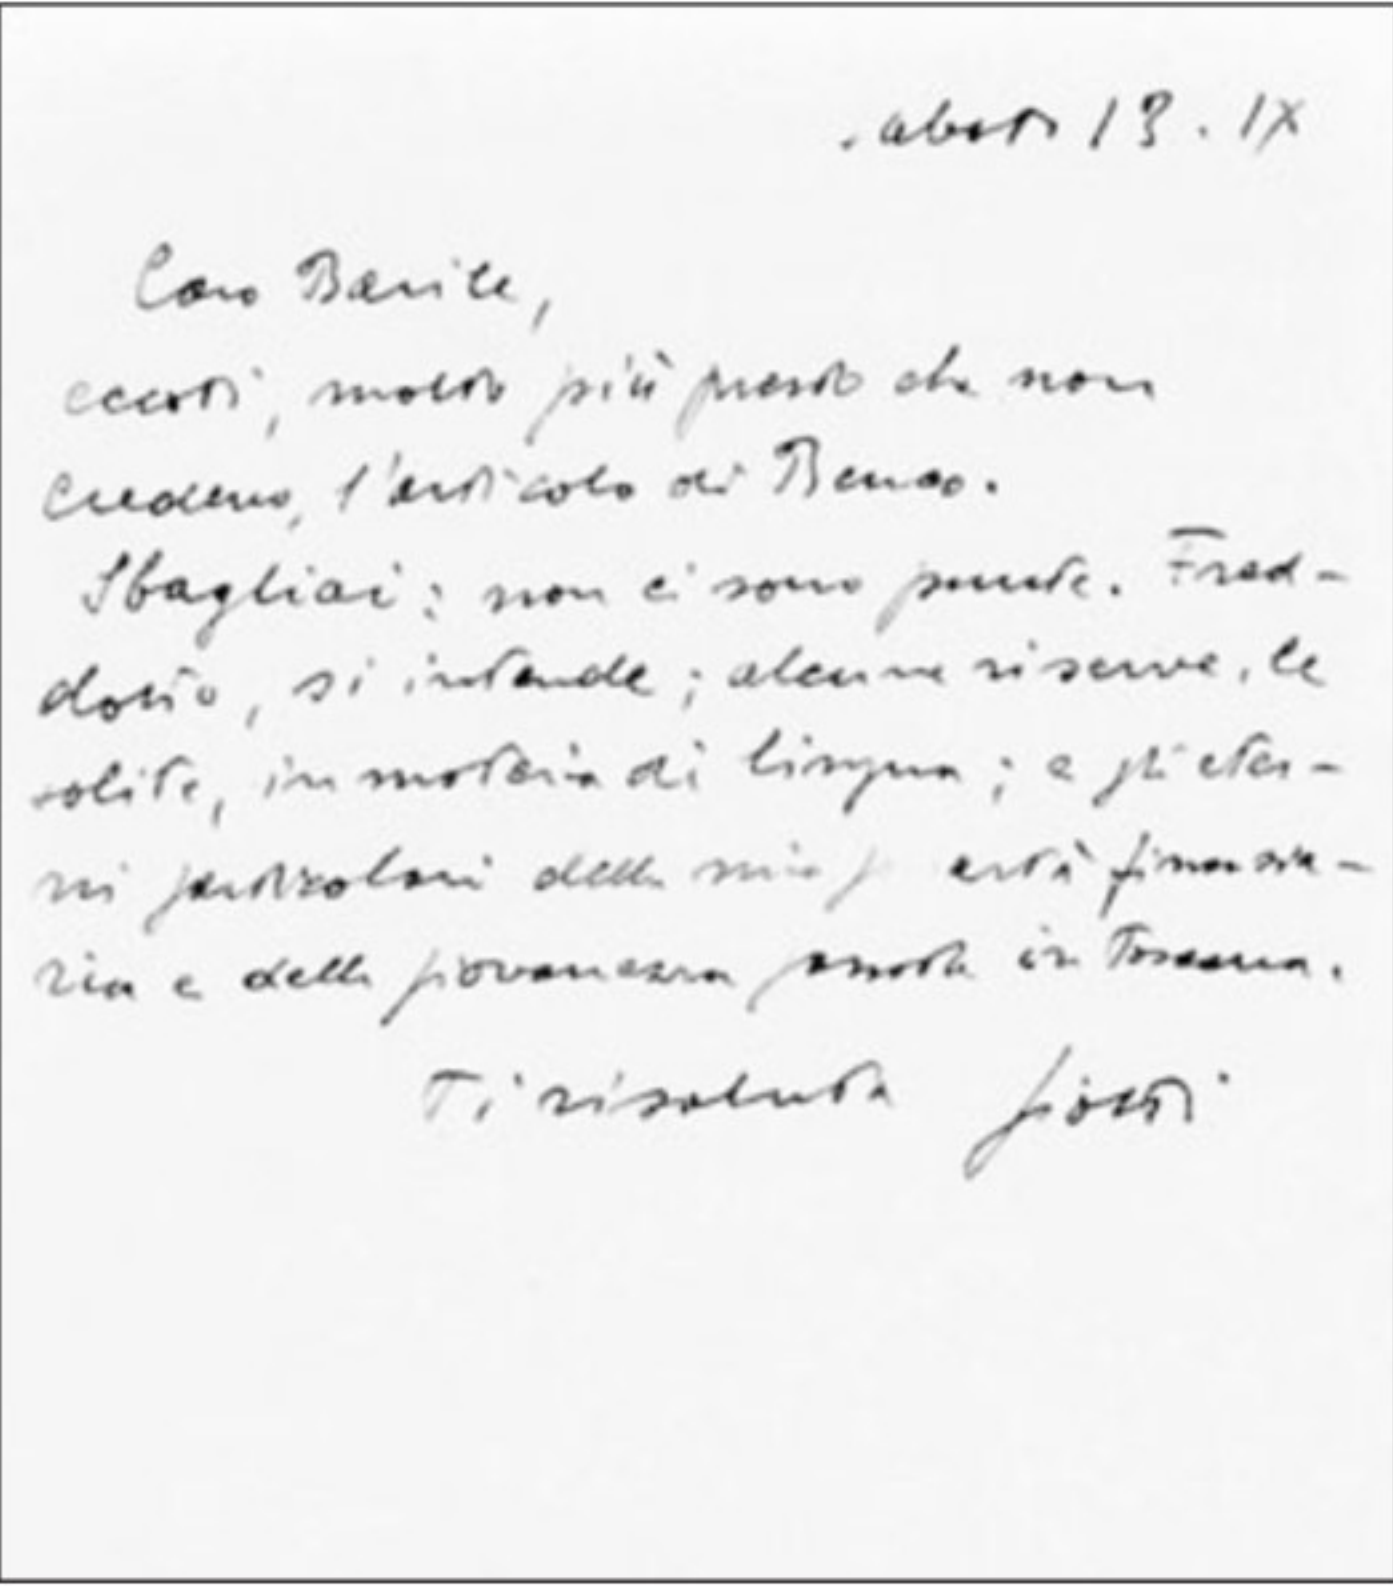 sabato 13. IX
Caro Barile,
eccoti, molto più presto che non
credevo, l'articolo di Benco.
Sbagliai: non ci sono punte. Fred-
dorio, si intende; alcune riserve, le
solite, in materia di lingua; e gli eter-
ni particolari della mia p ertà finanzia-
ria e della giovanezza passata in Toscana.
Ti risaluta Giotti